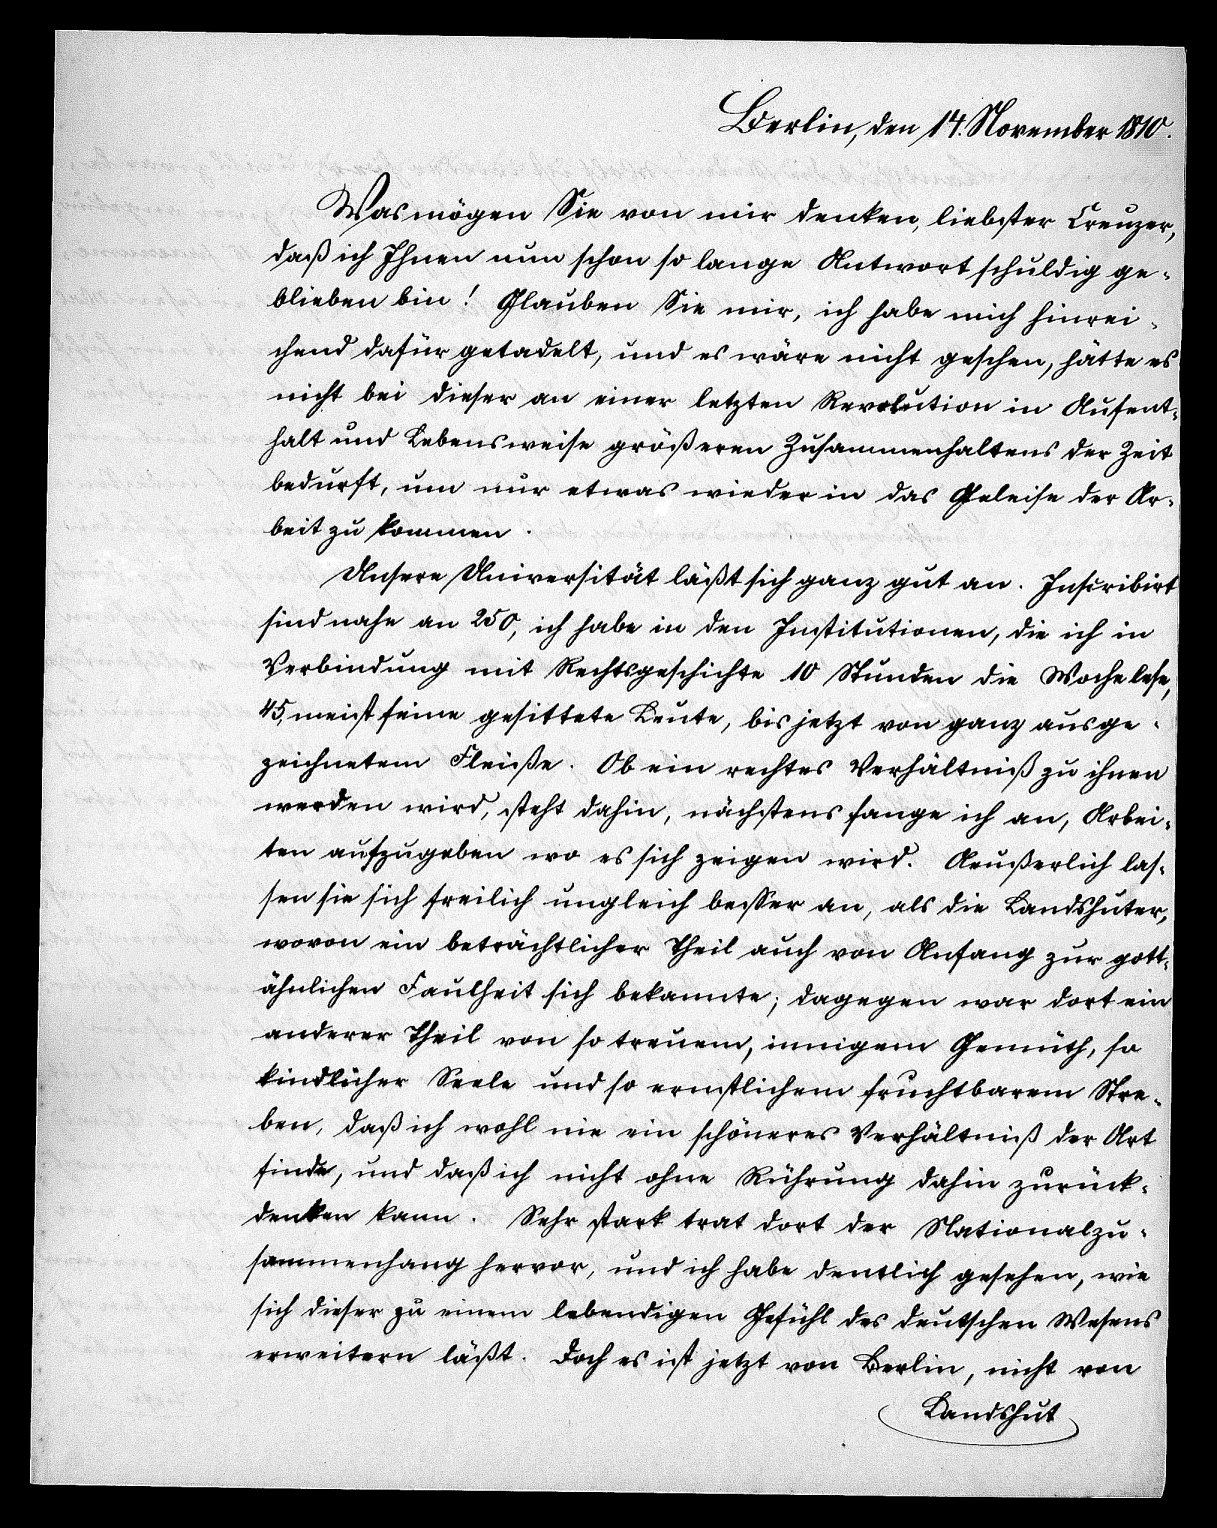 Berlin, den 14. November 1810.
Was mögen Sie von mir denken, liebster Creuzer,
daß ich Ihnen nun schon so lange Antwort schuldig ge-
blieben bin! Glauben Sie mir, ich habe mich hinrei-
chend dafür getadelt, und es wäre nicht geschen, hätte es
nicht bei dieser an einer letzten Revolution in Aufent-
halt und Lebensweise größeren Zusammenhaltens der Zeit
bedurft, um nur etwas wieder in das Geleise der Ar-
beit zu kommen.
Unsere Universität läßt sich ganz gut an. Inscribirt
sind nahe an 250, ich habe in den Institutionen, die ich in
Verbindung mit Rechtsgeschichte 10 Stunden die Woche lese,
45, meist feine gesittete Leute, bis jetzt von ganz ausge-
zeichnetem Fleiße. Ob ein rechtes Verhältniß zu ihnen
werden wird, steht dahin, nächstens fange ich an, Arbei-
ten aufzugeben wo es sich zeigen wird. Aeußerlich las-
sen sie sich freilich ungleich besser an, als die Landshuter,
wovon ein beträchtlicher Theil auch von Anfang zur gott-
ähnlichen Faulheit sich bekannte; dagegen war dort ein
anderer Theil von so treuem, innigem Gemüth, so
kindlicher Seele und so ernstlichem fruchtbarem Stre-
ben, daß ich wohl nie ein schöneres Verhältniß der Art
finde, und daß ich nicht ohne Rührung dahin zurück-
denken kann. Sehr stark trat dort der Nationalzu-
sammenhang hervor, und ich habe deutlich gesehen, wie
sich dieser zu einem lebendigen Gefühl des deutschen Wesens
erweitern läßt. Doch es ist jetzt von Berlin, nicht von
Landshut